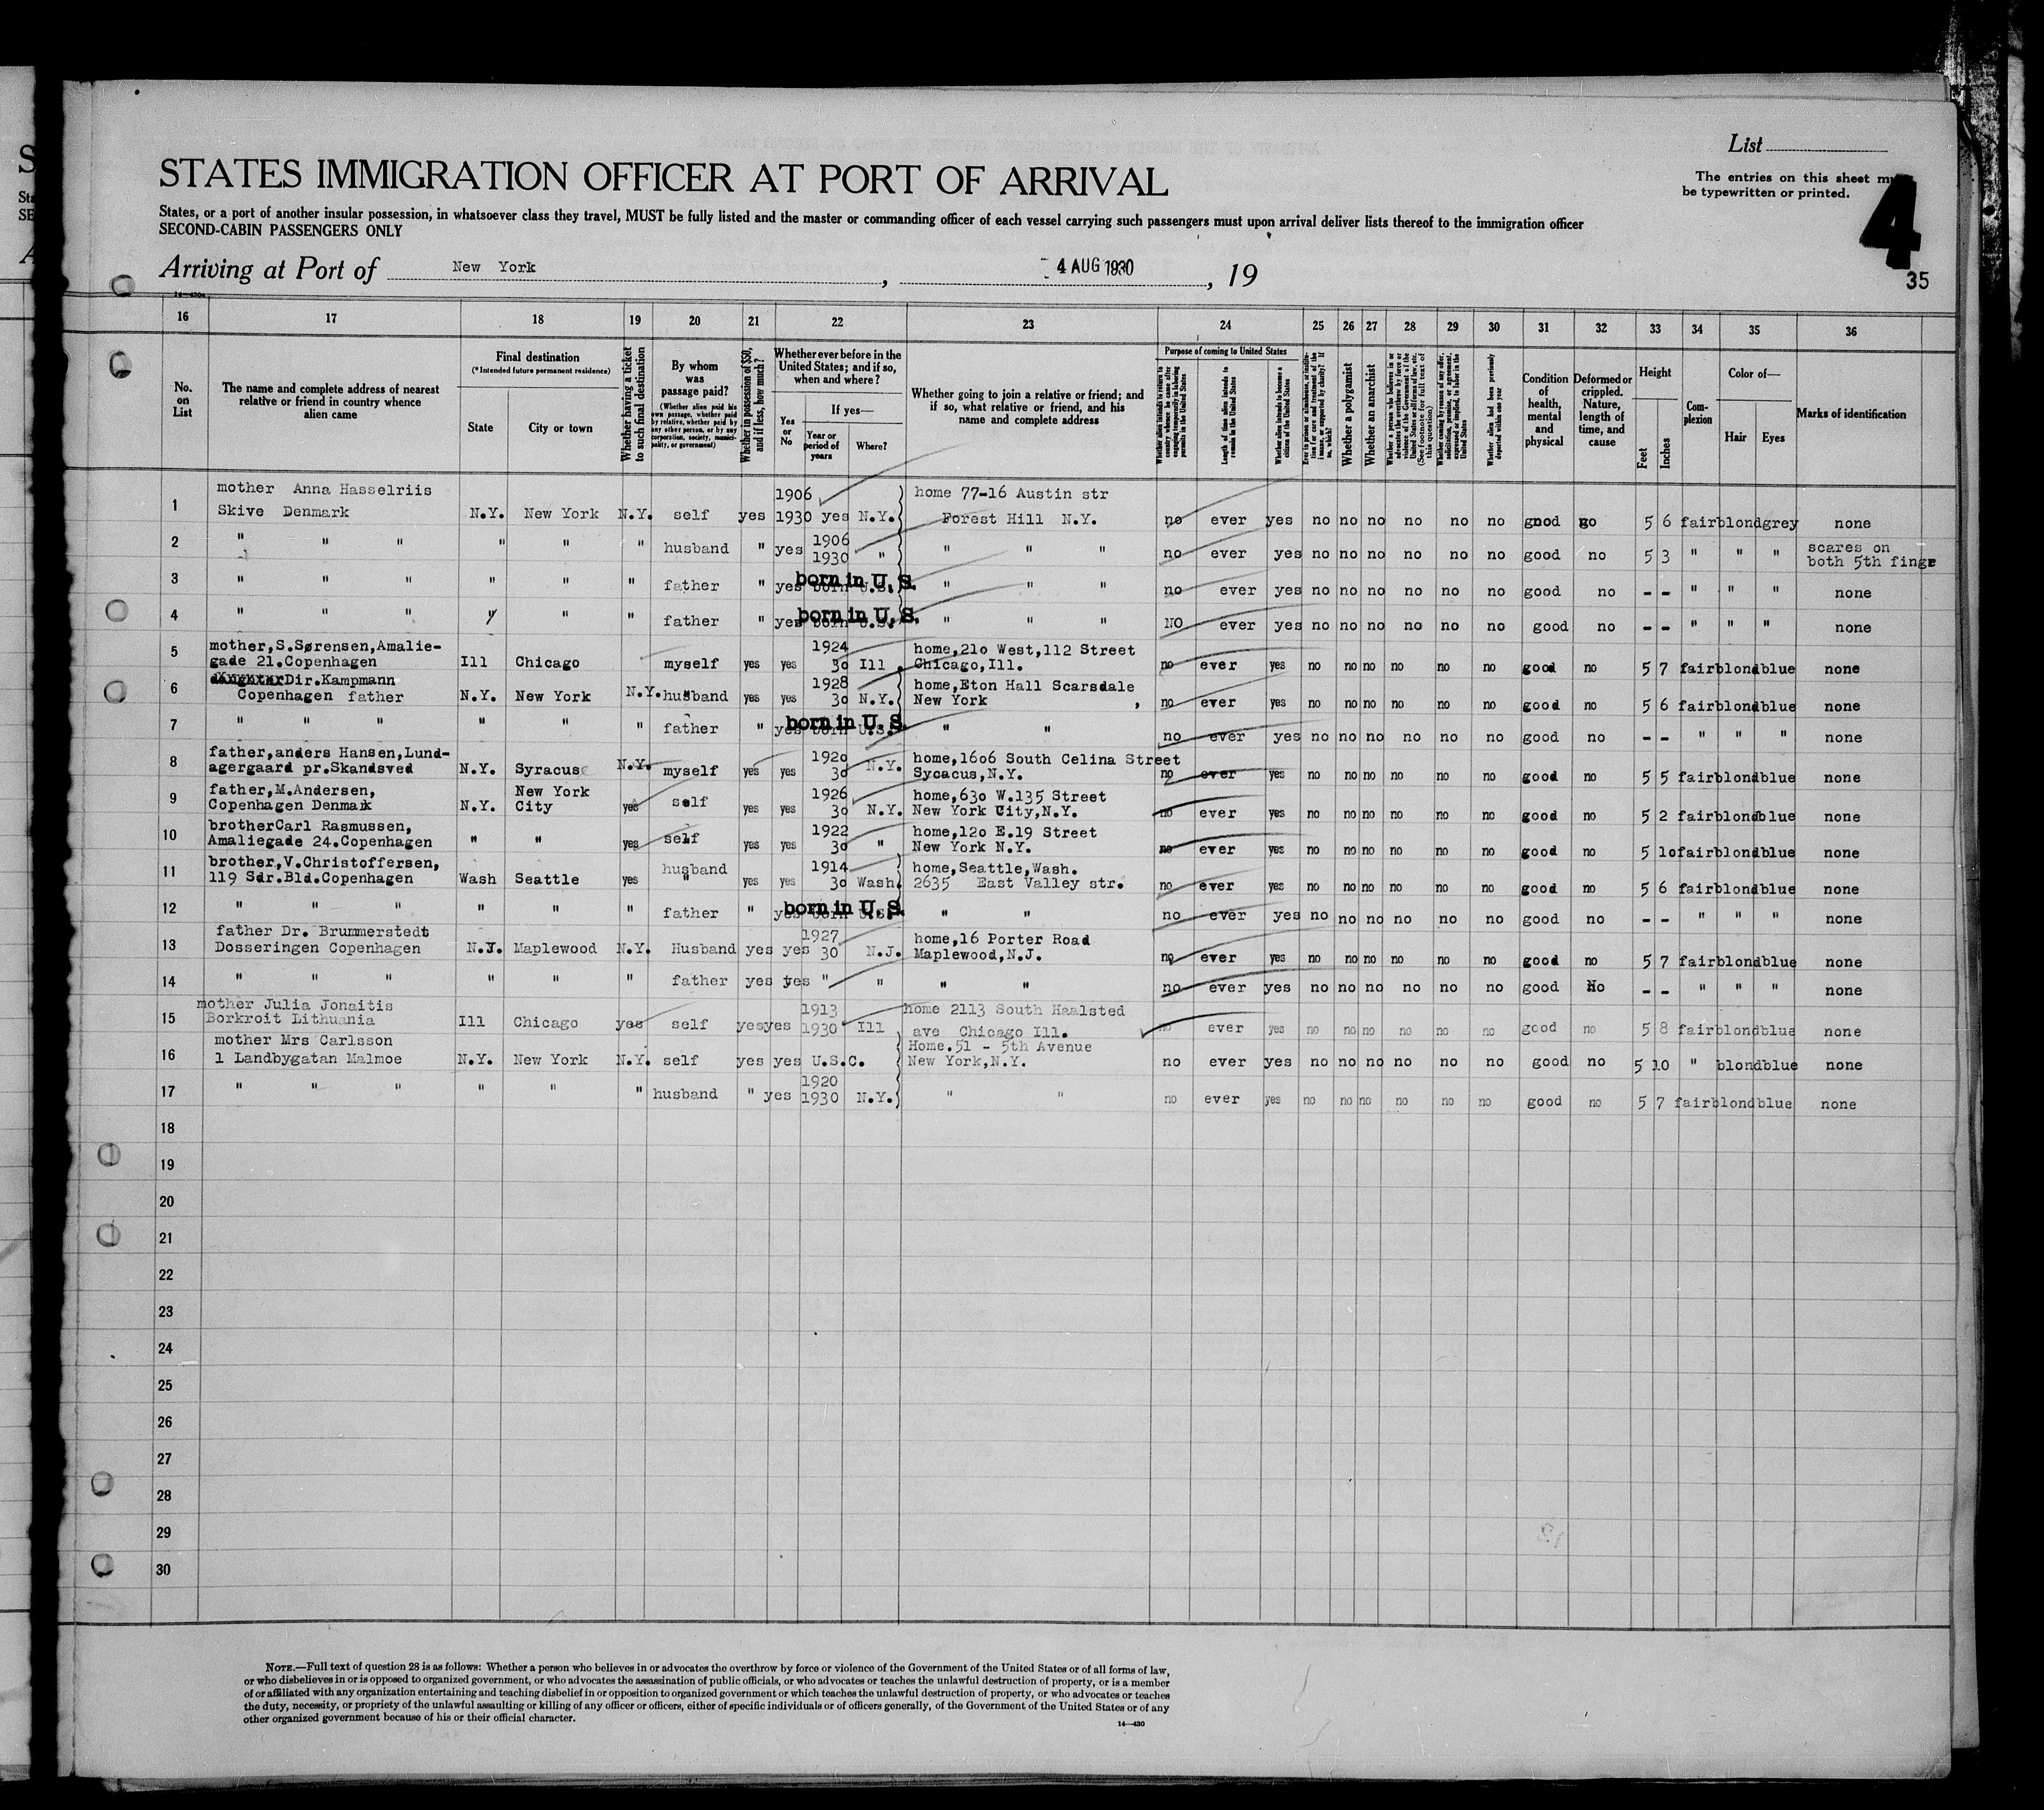 List
STATES IMMIGRATION OFFICER AT PORT OF ARRIVAL
The entries on this sheet
be typewritten or printed.
4
States, or a port of another insular possession, in whatsoever class they travel, MUST be fully listed and the master or commanding officer of each vessel carrying such passengers must upon arrival deliver lists thereof to the immigration officer
SECOND-CABIN PASSENGERS ONLY
Arriving at Port of New York , 4 AUG 1930 , 19
35
16 17 18 19 20 21 22 23 24 25 26 27 28 29 30 31 32 33 34 35 36
No. on List
The name and complete address of nearest relative or friend in country whence alien came
Final destination
(* Intended future permanent residence)
State
City or town
Whether having a ticket to such final destination
By whom was passage paid?
(Whether alien paid his own passage, whether paid by relative, whether paid by any other person, or by any corporation, society, municipality, or government)
Whether in possession of $50, and if less, how much?
Whether ever before in the United States; and if so, when and where?
Yes or No
If yes—
Year or period of years
Where?
Whether going to join a relative or friend; and if so, what relative or friend, and his name and complete address
Purpose of coming to United States
Length of time alien intends to remain in the United States
Whether alien intends to become a citizen of the United States
Whether a polygamist
Whether an anarchist
Whether alien had been previously deported within one year
Condition of health, mental and physical
Deformed or crippled. Nature, length of time, and cause
Height
Feet
Inches
Complexion
Color of—
Hair
Eyes
Marks of identification
1 mother Anna Hasselriis 1906 home 77-16 Austin str
Skive Denmark N.Y. New York N.Y. self yes 1930 yes N.Y. Forest Hill N.Y. no ever yes no no no no no no good no 5 6 fair blond grey none
2 " " " " " " husband " yes 1906 1930 " " " " no ever yes no no no no no no good no 5 3 " " " scares on
both 5th finge
3 " " " " " " father " yes born in U.S. " " " no ever yes no no no no no no good no - - " " " none
4 " " " " " " father " yes born in U.S. " " " NO ever yes no no no no no no good no - - " " " none
5 mother,S.Sørensen,Amalie- 1924 home,21o West,112 Street
gade 21.Copenhagen Ill Chicago myself yes yes 3o Ill. Chicago,Ill. no ever yes no no no no no no good no 5 7 fair blond blue none
6 Dir.Kampmann 1928 home,Eton Hall Scarsdale
Copenhagen father N.Y. New York N.Y. husband yes yes 3o N.Y. New York , no ever yes no no no no no no good no 5 6 fair blond blue none
7 " " " " " " father " yes born in U.S. " " no ever yes no no no no no no good no - - " " " none
8 father,anders Hansen,Lund- 1920 home,16o6 South Celina Street
agergaard pr.Skandsved N.Y. Syracus N.Y. myself yes yes 3o N.Y. Sycacus,N.Y. no ever yes no no no no no no good no 5 5 fair blond blue none
9 father,M.Andersen, New York 1926 home,63o W.135 Street
Copenhagen Denmark N.Y. City yes self yes yes 3o N.Y. New York City,N.Y. no ever yes no no no no no no good no 5 2 fair blond blue none
10 brotherCarl Rasmussen, 1922 home,12o E.19 Street
Amaliegade 24.Copenhagen " " yes self yes yes 3o " New York N.Y. no ever yes no no no no no no good no 5 1o fair blond blue none
11 brother,V.Christoffersen, husband 1914 home,Seattle,Wash.
119 Sdr.Bld.Copenhagen Wash Seattle yes " yes yes 3o Wash. 2635 East Valley str. no ever yes no no no no no no good no 5 6 fair blond blue none
12 " " " " " " father " yes born in U.S. " " no ever yes no no no no no no good no - - " " " none
13 father Dr. Brummerstedt 1927 home,16 Porter Road
Dosseringen Copenhagen N.J. Maplewood N.Y. Husband yes yes 30 N.J. Maplewood,N.J. no ever yes no no no no no no good no 5 7 fair blond blue none
14 " " " " " " father yes yes " " " " no ever yes no no no no no no good No - - " " " none
15 mother Julia Jonaitis 1913 home 2113 South Haalsted
Borkroit Lithuania Ill Chicago yes self yes yes 1930 Ill ave Chicago Ill. no ever yes no no no no no no good no 5 8 fair blond blue none
16 mother Mrs Carlsson Home.51 - 5th Avenue
1 Landbygatan Malmoe N.Y. New York N.Y. self yes yes U.S.C. New York,N.Y. no ever yes no no no no no no good no 5 10 " blond blue none
17 " " " " " " husband " yes 1920 1930 N.Y. " " no ever yes no no no no no no good no 5 7 fair blond blue none
18
19
20
21
22
23
24
25
26
27
28
29
30
NOTE.—Full text of question 28 is as follows: Whether a person who believes in or advocates the overthrow by force or violence of the Government of the United States or of all forms of law,
or who disbelieves in or is opposed to organized government, or who advocates the assassination of public officials, or who advocates or teaches the unlawful destruction of property, or is a member
of or affiliated with any organization entertaining and teaching disbelief in or opposition to organized government or which teaches the unlawful destruction of property, or who advocates or teaches
the duty, necessity, or propriety of the unlawful assaulting or killing of any officer or officers, either of specific individuals or of officers generally, of the Government of the United States or of any
other organized government because of his or their official character.
14—430